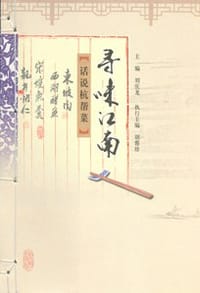 寻味江南
【话说杭帮菜】
主编 刘庆龙 执行主编 胡忠雄
东坡肉
西湖醋鱼
宋嫂鱼羹
龙井虾仁